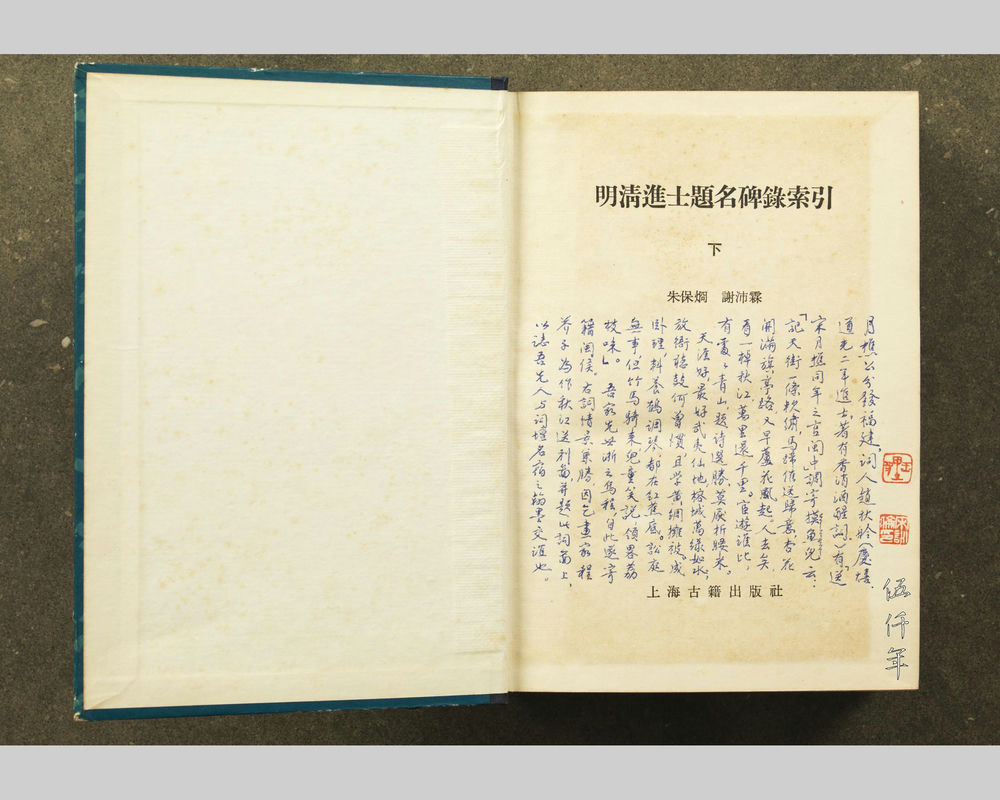 明清進士題名碑錄索引
下
朱保烱　謝沛霖
月樵公分發福建，詞人趙秋舲（慶熺，
道光二年進士，著有香消酒醒詞）有「送
宋月樵同年之官闽中」調寄摸魚兒云：
「記天街一條軟繡，馬蹄催送歸意。杏花
開滿旗亭路，又早蘆花風起。人去矣，
有一棹秋江，萬里還千里。宦遊誰比，
有疊疊青山，題詩選勝，莫厭折腰米。
天涯好，最好武夷仙地。榕城萬綠如水，
放衙聽鼓何曾慣，且學黃綢擁被。成
卧理，料養鶴調琴，都在紅蕉底。訟庭
無事，但竹馬騎来，兒童笑説，領畧荔
枝味」。　吾家先世浙之烏程，自此遂寄
籍闽侯。右詞情景兼勝，因乞畫家程
芥子為作秋江送别圖并題此詞圖上，
以誌吾先人与詞壇名宿之翰墨交誼也。
上海古籍出版社
伍仟年